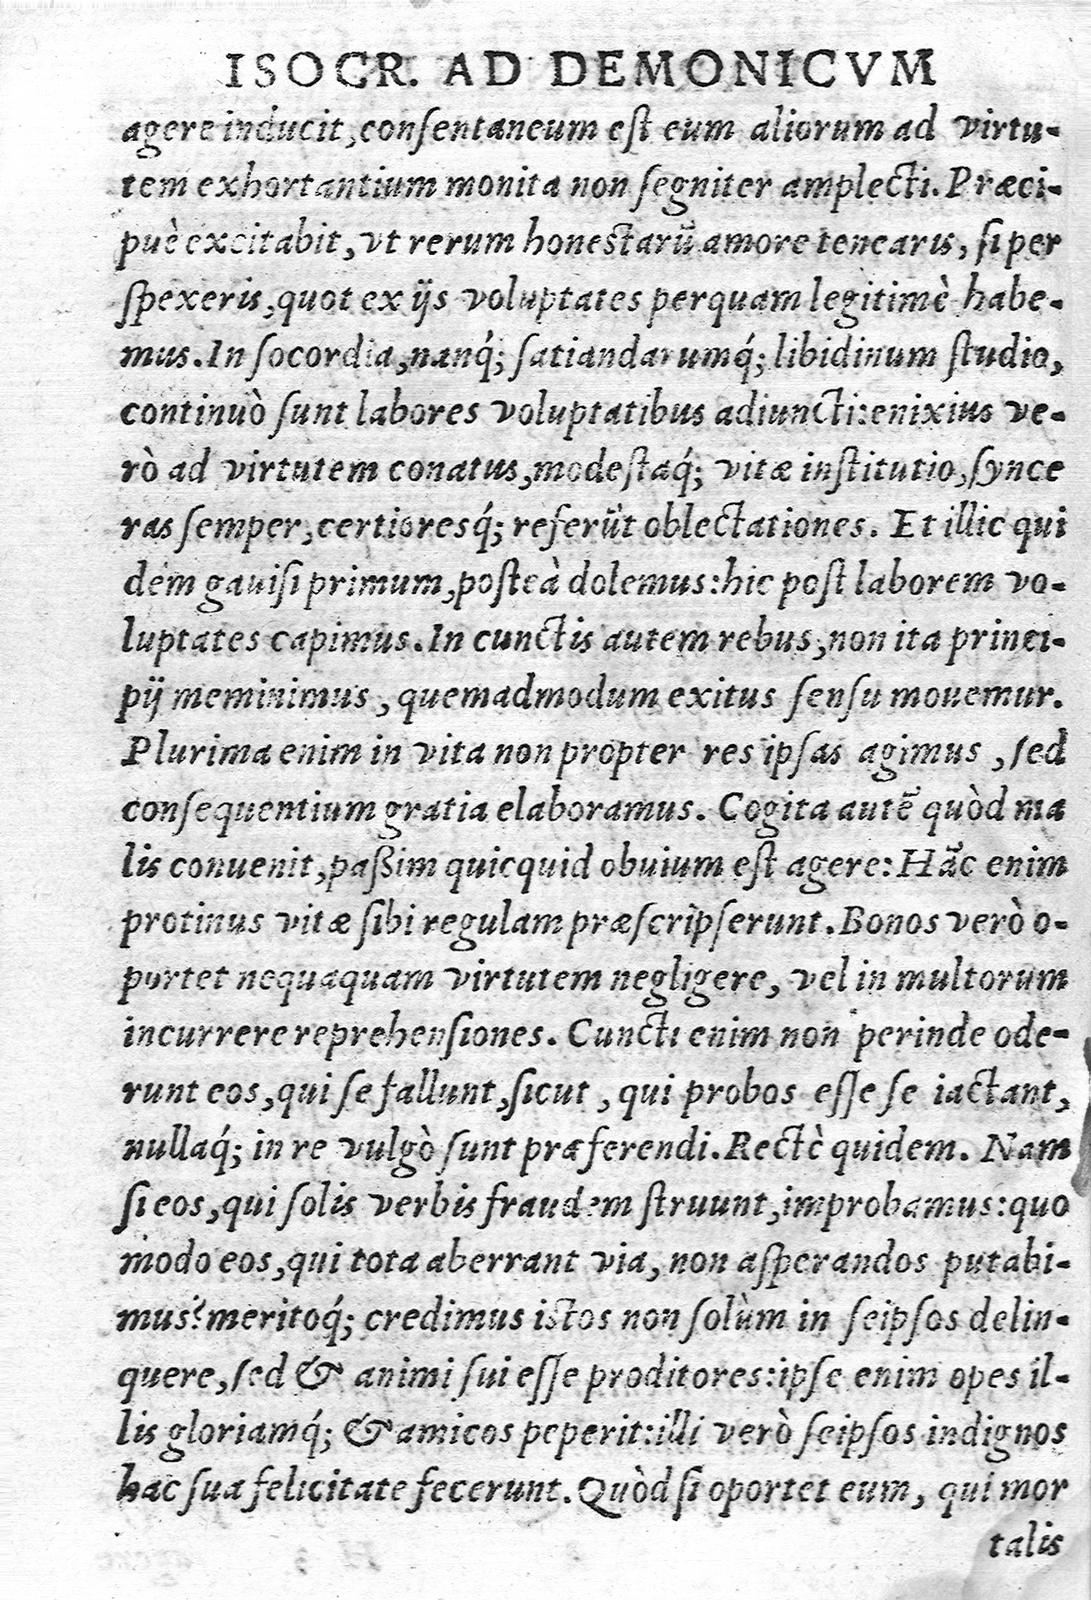 ISOCR. AD DEMONICVM
agere inducit, conſentaneum eſt eum aliorum ad virtu-
tem exhortantium monita non ſegniter amplecti. Præci-
puè excitabit, vt rerum honeſtarũ amore tenearis, ſi per
ſpexeris, quot ex ijs voluptates perquam legitimè habe-
mus. In ſocordia, nanq́; ſatiandarumq́; libidinum ſtudio,
continuò ſunt labores voluptatibus adiuncti: enixius ve-
rò ad virtutem conatus, modeſtaq́; vitæ inſtitutio, ſynce
ras ſemper, certioresq́; referũt oblectationes. Et illic qui
dem gauiſi primum, poſteà dolemus: hic poſt laborem vo-
luptates capimus. In cunctis autem rebus, non ita princi-
pij meminimus, quemadmodum exitus ſenſu mouemur.
Plurima enim in vita non propter res ipſas agimus, ſed
conſequentium gratia elaboramus. Cogita autẽ quòd ma
lis conuenit, paßim quicquid obuium eſt agere: Hãc enim
protinus vitæ ſibi regulam præſcripſerunt. Bonos verò o-
portet nequaquam virtutem negligere, vel in multorum
incurrere reprehenſiones. Cuncti enim non perinde ode-
runt eos, qui ſe fallunt, ſicut, qui probos eſſe ſe iactant,
nullaq́; in re vulgò ſunt præferendi. Rectè quidem. Nam
ſi eos, qui ſolis verbis fraudem ſtruunt, improbamus: quo
modo eos, qui tota aberrant via, non aſperandos putabi-
mus? meritoq́; credimus iſtos non ſolùm in ſeipſos delin-
quere, ſed & animi ſui eſſe proditores: ipſe enim opes il-
lis gloriamq́; & amicos peperit: illi verò ſeipſos indignos
hac ſua felicitate fecerunt. Quòd ſi oportet eum, qui mor
talis